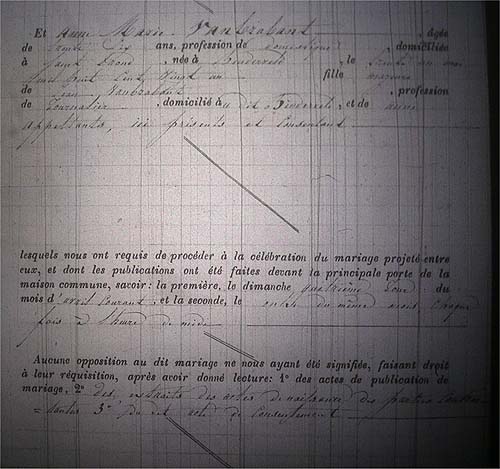 Et Anne Marie Vanbrabant, âgée
de trente six ans, profession de domestique, domiciliée
à Saint Trond, née à, le trente un mai
mil huit cent vingt un fille majeure
de Jean Vanbrabant, profession
de journalier, domicilié au dit, et de Anne
, ici présents et consentant
lesquels nous ont requis de procéder à la célébration du mariage projeté entre
eux, et dont les publications ont été faites devant la principale porte de la
maison commune, savoir: la première, le dimanche quatrième jour du
mois d'avril courant, et la seconde, le onze du même mois chaque
fois à l'heure de midi
Aucune opposition au dit mariage ne nous ayant été signifiée, faisant droit
à leur réquisition, après avoir donné lecture: 1º des actes de publication de
mariage, 2º des extraits des actes de naissance des parties contrac
= tantes 3º du dit acte de consentement